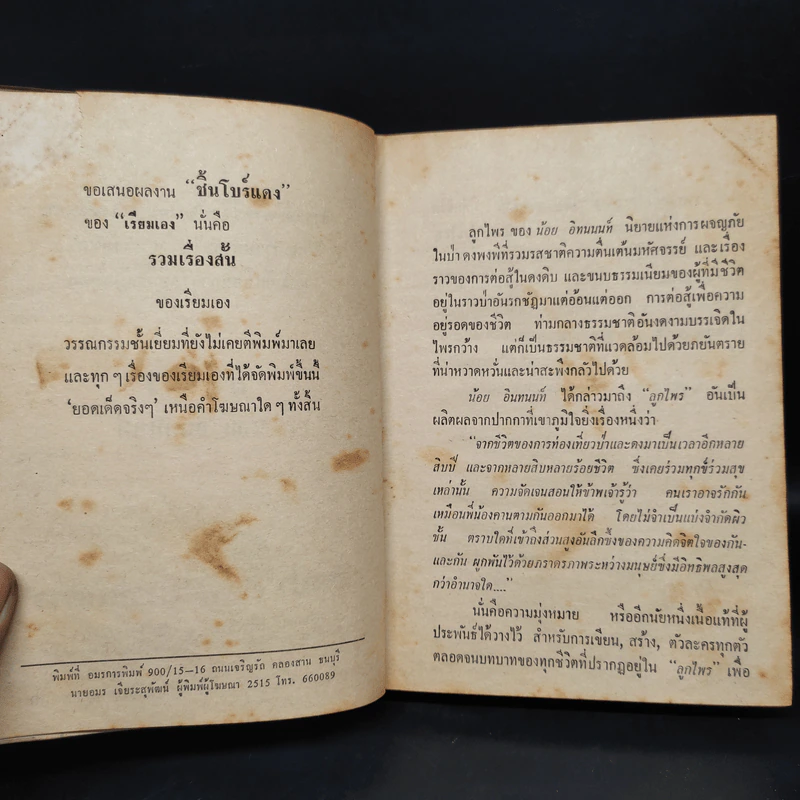 ขอเสนอผลงาน “ชั้นโบร์แดง”
ของ “เรียมเอง” นั่นคือ
รวมเรื่องสั้น
ของเรียมเอง
วรรณกรรมชั้นเยี่ยมที่ยังไม่เคยตีพิมพ์มาเลย
และทุก ๆ เรื่องของเรียมเองที่ได้จัดพิมพ์ขึ้นนี้
‘ยอดเด็ดจริงๆ’ เหนือคำโฆษณาใด ๆ ทั้งสิ้น
พิมพ์ที่ อมรการพิมพ์ 900/15–16 ถนนเจริญรัถ คลองสาน ธนบุรี
นายอมร เจียระสุพัฒน์ ผู้พิมพ์ผู้โฆษณา 2515 โทร. 660089
ลูกไพร ของ น้อย อิทนนท์ นิยายแห่งการผจญภัย
ในป่า ดงพงพีที่รวมรสชาติความตื่นเต้นมหัศจรรย์ และเรื่อง
ราวของการต่อสู้ในดงดิบ และขนบธรรมเนียมของผู้ที่มีชีวิต
อยู่ในราวป่าอันรกชัฏมาแต่อ้อนแต่ออก การต่อสู้เพื่อความ
อยู่รอดของชีวิต ท่ามกลางธรรมชาติอันงดงามบรรเจิดใน
ไพรกว้าง แต่ก็เป็นธรรมชาติที่แวดล้อมไปด้วยภยันตราย
ที่น่าหวาดหวั่นและน่าสะพึงกลัวไปด้วย
น้อย อินทนนท์ ได้กล่าวมาถึง “ลูกไพร” อันเป็น
ผลิตผลจากปากกาที่เขาภูมิใจยิ่งเรื่องหนึ่งว่า
“จากชีวิตของการท่องเที่ยวป่าและดงมาเป็นเวลาอีกหลาย
สิบปี และจากหลายสิบหลายร้อยชีวิต ซึ่งเคยร่วมทุกข์ร่วมสุข
เหล่านั้น ความจัดเจนสอนให้ข้าพเจ้ารู้ว่า คนเราอาจรักกัน
เหมือนพี่น้องคานตามกันออกมาได้ โดยไม่จำเป็นแบ่งจำกัดผิว
ชั้น ตราบใดที่เข้าถึงส่วนสูงอันลึกซึ้งของความคิดจิตใจของกัน-
และกัน ผูกพันไว้ด้วยภราดรภาพระหว่างมนุษย์ซึ่งมีอิทธิพลสูงสุด
กว่าอำนาจใด....”
นั่นคือความมุ่งหมาย หรืออีกนัยหนึ่งเนื้อแท้ที่ผู้
ประพันธ์ได้วางไว้ สำหรับการเขียน, สร้าง, ตัวละครทุกตัว
ตลอดจนบทบาทของทุกชีวิตที่ปรากฏอยู่ใน “ลูกไพร” เพื่อ